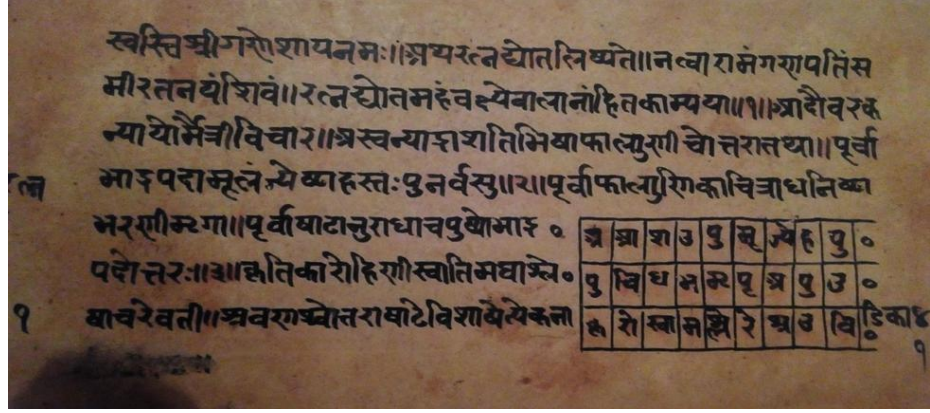 स्वस्ति श्रीगणेशायनमः॥अथरत्नद्योतलिष्यते॥नत्वारामंगणपतिंस
मीरतनयंशिवं॥रत्नद्योतमहंवक्ष्येबालानांहितकाम्यया॥१॥आदौवरक
न्यायोर्मैत्रीविचार॥अस्वन्याद्राशतिभिषाफाल्गुणीचोत्तरातथा॥पूर्वा
भाद्रपदामूलंज्येष्ठाहस्तःपुनर्वसु॥२॥पूर्वाफाल्गुणिकाचित्राधनिष्ठा
भरणीमृगा॥पूर्वाषाटानुराधाचपुष्योभाद्र ०
पदोत्तरः॥३॥कृतिकारोहिणीस्वातिमघाश्ले०
षाचरेवती॥श्रवणश्चोत्तराषाटेविशाषेत्येकना
अ आ श उ पु मू ज्ये ह पु ०
पु चि ध भ मृ पू अ पु उ ०
कृ रो स्वा म श्ले रे श्र उ वि डिका४
०
त्न
१
१